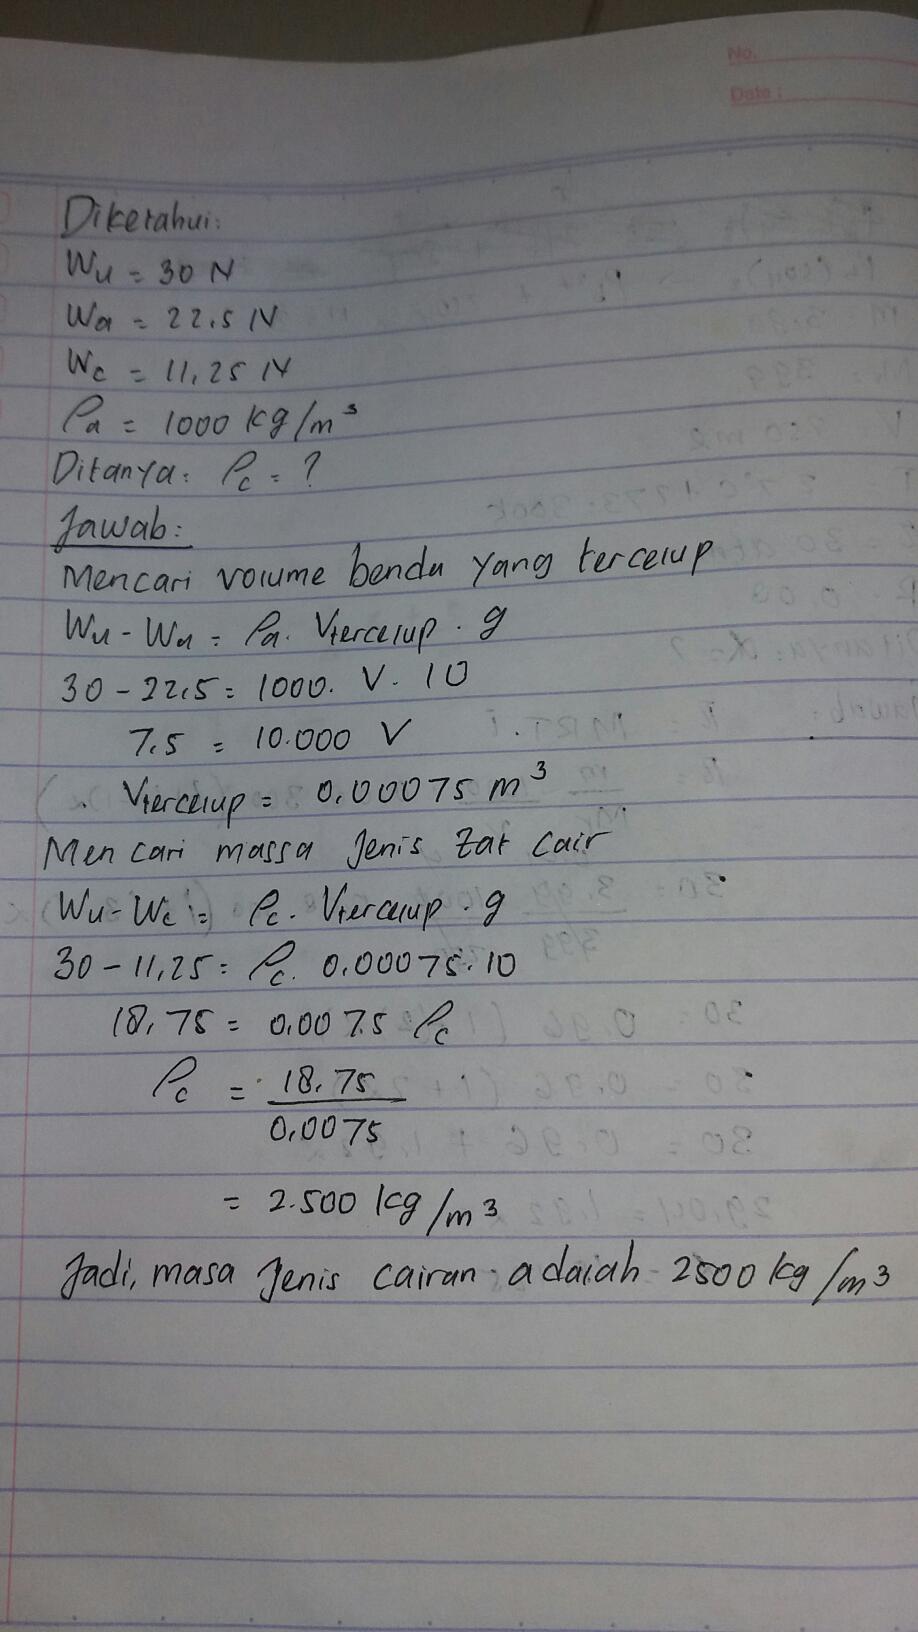 No.
Date:
Diketahui:
Wu = 30 N
Wa = 22,5 N
Wc = 11,25 N
ρa = 1000 kg/m³
Ditanya: ρc = ?
Jawab:
Mencari volume benda yang tercelup
Wu - Wa = ρa. Vtercelup . g
30 - 22,5 = 1000. V. 10
7,5 = 10.000 V
Vtercelup = 0,00075 m³
Mencari massa Jenis zat cair
Wu - Wc = ρc. Vtercelup . g
30 - 11,25 = ρc. 0,00075.10
18,75 = 0,0075 ρc
ρc = 18,75
0,0075
= 2.500 kg/m³
Jadi, masa Jenis cairan adalah 2500 kg/m³